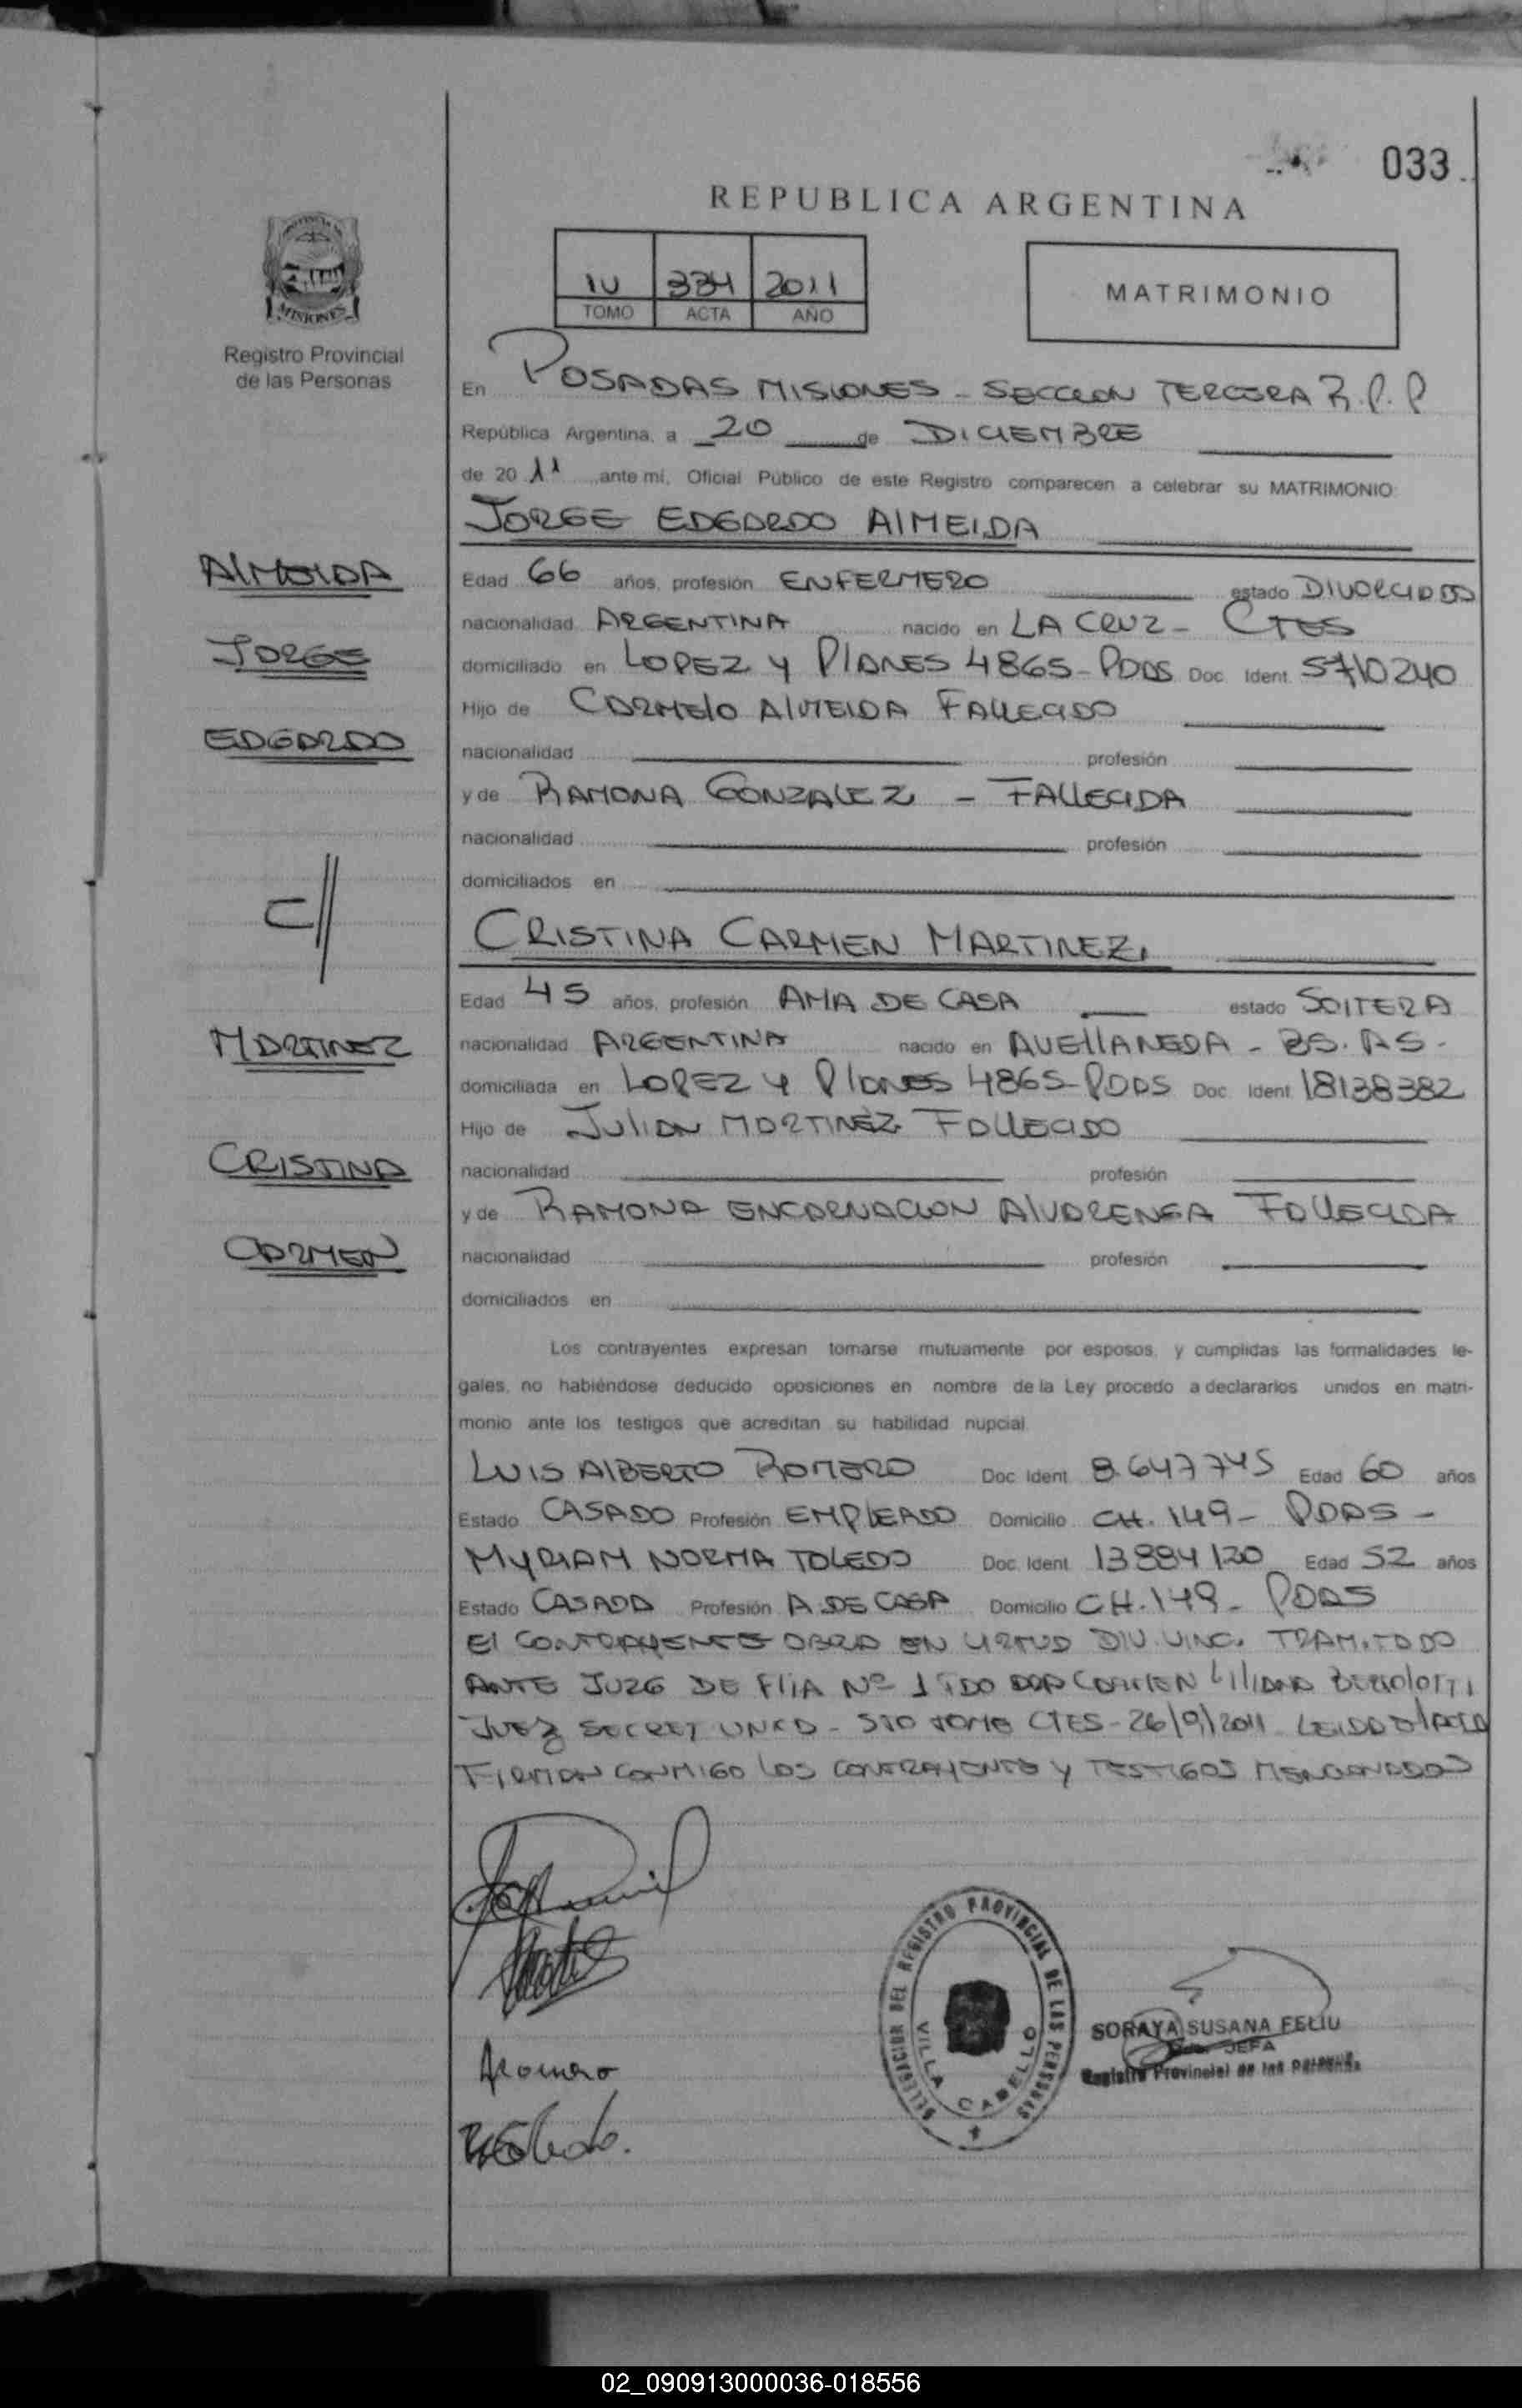 033
REPUBLICA ARGENTINA
IV 334 2011
TOMO ACTA AÑO
MATRIMONIO
MISIONES
Registro Provincial
de las Personas
En POSADAS MISIONES - SECCION TERCERA R.P.P
República Argentina, a 20 de DICIEMBRE
de 20 11 ante mí, Oficial Público de este Registro comparecen a celebrar su MATRIMONIO:
JORGE EDGARDO ALMEIDA
ALMEIDA
JORGE
EDGARDO
C//
MARTINEZ
CRISTINA
CARMEN
Edad 66 años, profesión ENFERMERO estado DIVORCIADO
nacionalidad ARGENTINA nacido en LA CRUZ - CTES
domiciliado en LOPEZ Y PLANES 4865 - PDAS Doc. Ident. 5710240
Hijo de CARMELO ALMEIDA FALLECIDO
nacionalidad profesión
y de RAMONA GONZALEZ - FALLECIDA
nacionalidad profesión
domiciliados en
CRISTINA CARMEN MARTINEZ.
Edad 45 años, profesión AMA DE CASA estado SOLTERA
nacionalidad ARGENTINA nacido en AVELLANEDA - BS. AS -
domiciliada en LOPEZ Y PLANES 4865 - PDAS Doc. Ident. 18138382
Hijo de JULIAN MARTINEZ FALLECIDO
nacionalidad profesión
y de RAMONA ENCARNACION ALVARENGA FALLECIDA
nacionalidad profesión
domiciliados en
Los contrayentes expresan tomarse mutuamente por esposos, y cumplidas las formalidades le-
gales, no habiéndose deducido oposiciones en nombre de la Ley procedo a declararlos unidos en matri-
monio ante los testigos que acreditan su habilidad nupcial.
LUIS ALBERTO ROMERO Doc. Ident. 8.647745 Edad 60 años
Estado CASADO Profesión EMPLEADO Domicilio CH. 149 - PDAS -
MYRIAM NORMA TOLEDO Doc. Ident. 13884120 Edad 52 años
Estado CASADA Profesión A DE CASA Domicilio CH. 149 - PDAS
El CONTRAYENTE OBRA EN VIRTUD DIV. VINC. TRAMITADO
ANTE JUZG DE FLIA Nº 1 DRA CARMEN LILIANA
JUEZ SECRET UNICA - STO TOME CTES - 26/9/2011 LEIDA
FIRMAN CONMIGO LOS CONTRAYENTES Y TESTIGOS MENCIONADOS
Romero
DELEGACION DEL REGISTRO PROVINCIAL DE LAS PERSONAS
VILLA CABELLO
SORAYA SUSANA FELIU
JEFA
Registro Provincial de las Personas
02_090913000036-018556